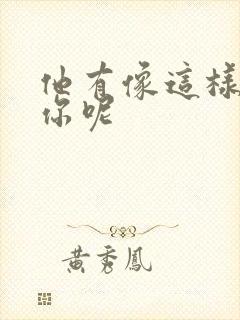 他有像這樣
你呢
黃秀鳳